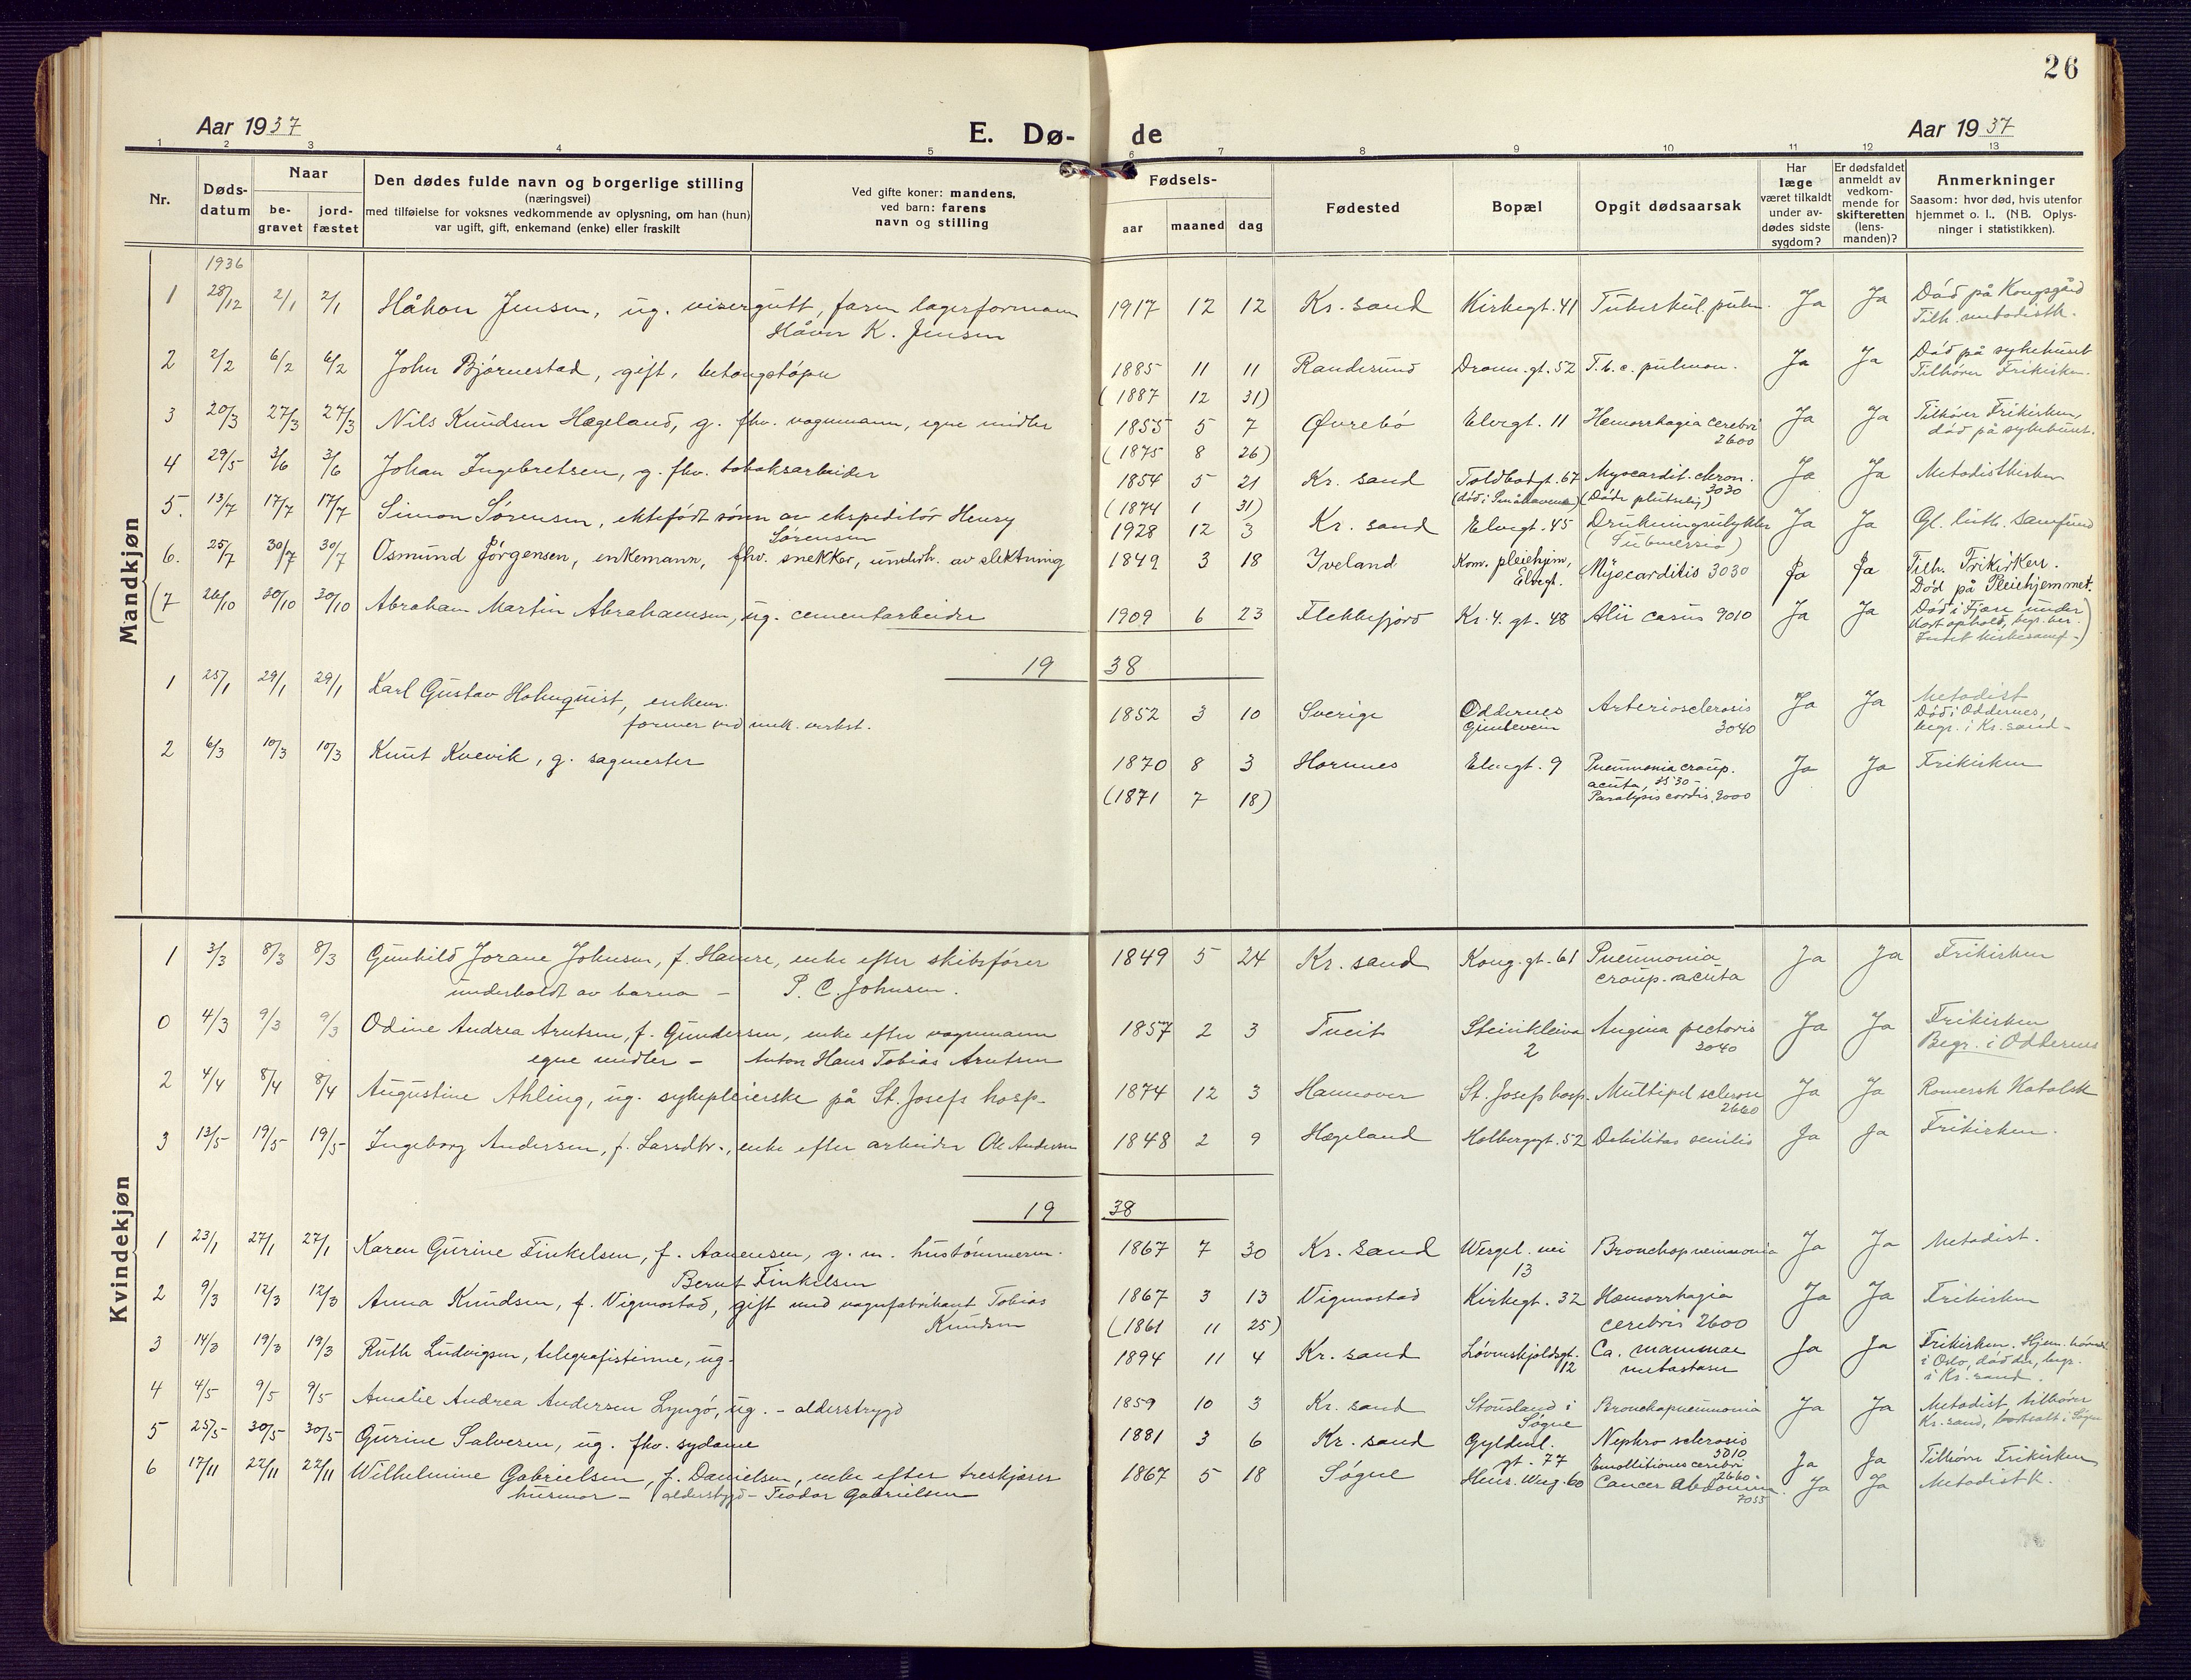 26
Aar 1937
E. Dø- de
Aar 1937
1 2 3 4 5 6 7 8 9 10 11 12 13
Nr.
Døds-
datum
Naar
be-
gravet
jord-
fæstet
Den dødes fulde navn og borgerlige stilling
(næringsvei)
med tilføielse for voksnes vedkommende av oplysning, om han (hun)
var ugift, gift, enkemand (enke) eller fraskilt
Ved gifte koner: mandens,
ved barn: farens
navn og stilling
Fødsels-
aar maaned dag
Fødested
Bopæl
Opgit dødsaarsak
Har
læge
været tilkaldt
under av-
dødes sidste
sygdom?
Er dødsfaldet
anmeldt av
vedkom-
mende for
skifteretten
(lens-
manden)?
Anmerkninger
Saasom: hvor død, hvis utenfor
hjemmet o. l., (NB. Oplys-
ninger i statistikken).
Mandkjøn
1936
1 28/12 2/1 2/1 Håkon Jensen, ug. visergutt, faren lagerformann 1917 12 12 Kr. sand Kirkegt. 41 Tuberkul. pulm. Ja Ja Død på Kongsgård
Håvor K. Jensen Tilh. metodistk.
2 2/2 6/2 6/2 John Bjørnestad, gift, betongstøper 1885 11 11 Randesund Dronn. gt. 52 T.b.c. pulmon. Ja Ja Død på sykehuset
(1887 12 31) Tilhører Frikirken.
3 20/3 27/3 27/3 Nils Knudsen Hægeland, g. fhv. vognmann, egne midler 1855 5 7 Øvrebø Elvegt. 11 Hæmorrhagia cerebri Ja Ja Tilhører Frikirken,
(1875 8 26) 2600 død på sykehuset.
4 29/5 3/6 3/6 Johan Ingebretsen, g. fhv. tobaksarbeider 1854 5 21 Kr. sand Toldbodgt. 67 Myocardit. chron. Ja Ja Metodistkirken
(1874 1 31) 3030 (Døde plutselig)
5. 13/7 17/7 17/7 Simon Sørensen, ektefødt sønn av ekspeditør Henry 1928 12 3 Kr. sand Elvegt. 45 Drukningsulykke Ja Ja Gl. luth. samfund
Sørensen (Submersio)
6. 25/7 30/7 30/7 Osmund Jørgensen, enkemann, fhv. snekker, underh. av slektning 1849 3 18 Iveland Kom. pleiehjem, Myocarditis 3030 Ja Ja Tilh. Frikirken.
Elvegt. Død på Pleiehjemmet.
(7 26/10 30/10 30/10 Abraham Martin Abrahamsen, ug. cementarbeider 1909 6 23 Flekkefjord Kr. 4. gt. 48 Alii casus 9010 Ja Ja Død i Fjære under
kort ophold, begr. her.
Intet kirkesamf.)
19 38
1 25/1 29/1 29/1 Karl Gustav Holmquist, enkem. 1852 3 10 Sverige Oddernes Arteriosclerosis Ja Ja Metodist
former ved mek. verkst. Gimleveien 3040 Død i Oddernes,
begr. i Kr. sand-
2 6/3 10/3 10/3 Knut Kvevik, g. sagmester 1870 8 3 Hornnes Elvegt. 9 Pneumonia croup. Ja Ja Frikirken
(1871 7 18) acuta,
Paralysis cordis.
Kvindekjøn
1 3/3 8/3 8/3 Gunhild Jorane Johnsen, f. Hamre, enke efter skibsfører 1849 5 24 Kr. sand Kong. gt. 61 Pneumonia Ja Ja Frikirken
underholdt av barna - P. C. Johnsen. croup. acuta
0 4/3 9/3 9/3 Odine Andrea Arntsen, f. Gundersen, enke efter vognmann 1857 2 3 Tveit Steinkleiva Angina pectoris Ja Ja Frikirken
egne midler - Anton Hans Tobias Arntsen 2 3040 Begr. i Oddernes
2 4/4 8/4 8/4 Augustine Ahling, ug. sykepleierske på St. Josefs hosp. 1874 12 3 Hannover St. Josefs hosp. Multipel sclerose Ja Ja Romersk Katolsk
2660
3 13/5 19/5 19/5 Ingeborg Andersen, f. Larsdtr., enke efter arbeider Ole Andersen 1848 2 9 Hægeland Holbergsgt. 52 Debilitas senilis Ja Ja Frikirken.
19 38
1 23/1 27/1 27/1 Karen Gurine Finkelsen, f. Aanensen, g. m. hustømmerm. 1867 7 30 Kr. sand Wergel. vei Bronchopneumonia Ja Ja Metodist.
Bernt Finkelsen 13
2 9/3 12/3 12/3 Anna Knudsen, f. Vigmostad, gift med vognfabrikant Tobias 1867 3 13 Vigmostad Kirkegt. 32 Hæmorrhagia Ja Ja Frikirken
Knudsen (1861 11 25) cerebris 2600
3 14/3 19/3 19/3 Ruth Ludvigsen, telegrafistinne, ug. 1894 11 4 Kr. sand Løvenskjoldsgt. Ca. mammae Ja Ja Frikirken. Hjem.
12 metastaser i Oslo, død der, begr.
i Kr. sand.
4 4/5 9/5 9/5 Amalie Andrea Andersen Lyngø, ug. - alderstrygd 1859 10 3 Kr. sand Stousland i Bronchopneumonia Ja Ja Metodist, tilhører
Søgne Kr. sand, bortsatt i Søgne
5 25/5 30/5 30/5 Gurine Salvesen, ug. fhv. sydame 1881 3 6 Kr. sand Gyldenl. Nephro sclerosis Ja Ja Tilhører Frikirken
gt. 77 3010 Emollitiones cerebri
6 17/11 22/11 22/11 Wilhelmine Gabrielsen, f. Danielsen, enke efter treskjærer 1867 5 18 Søgne Henr. Werg. 60 2660. Cancer Abdomin. Ja Ja Metodistk.
husmor - alderstrygd - Teodor Gabrielsen 7055